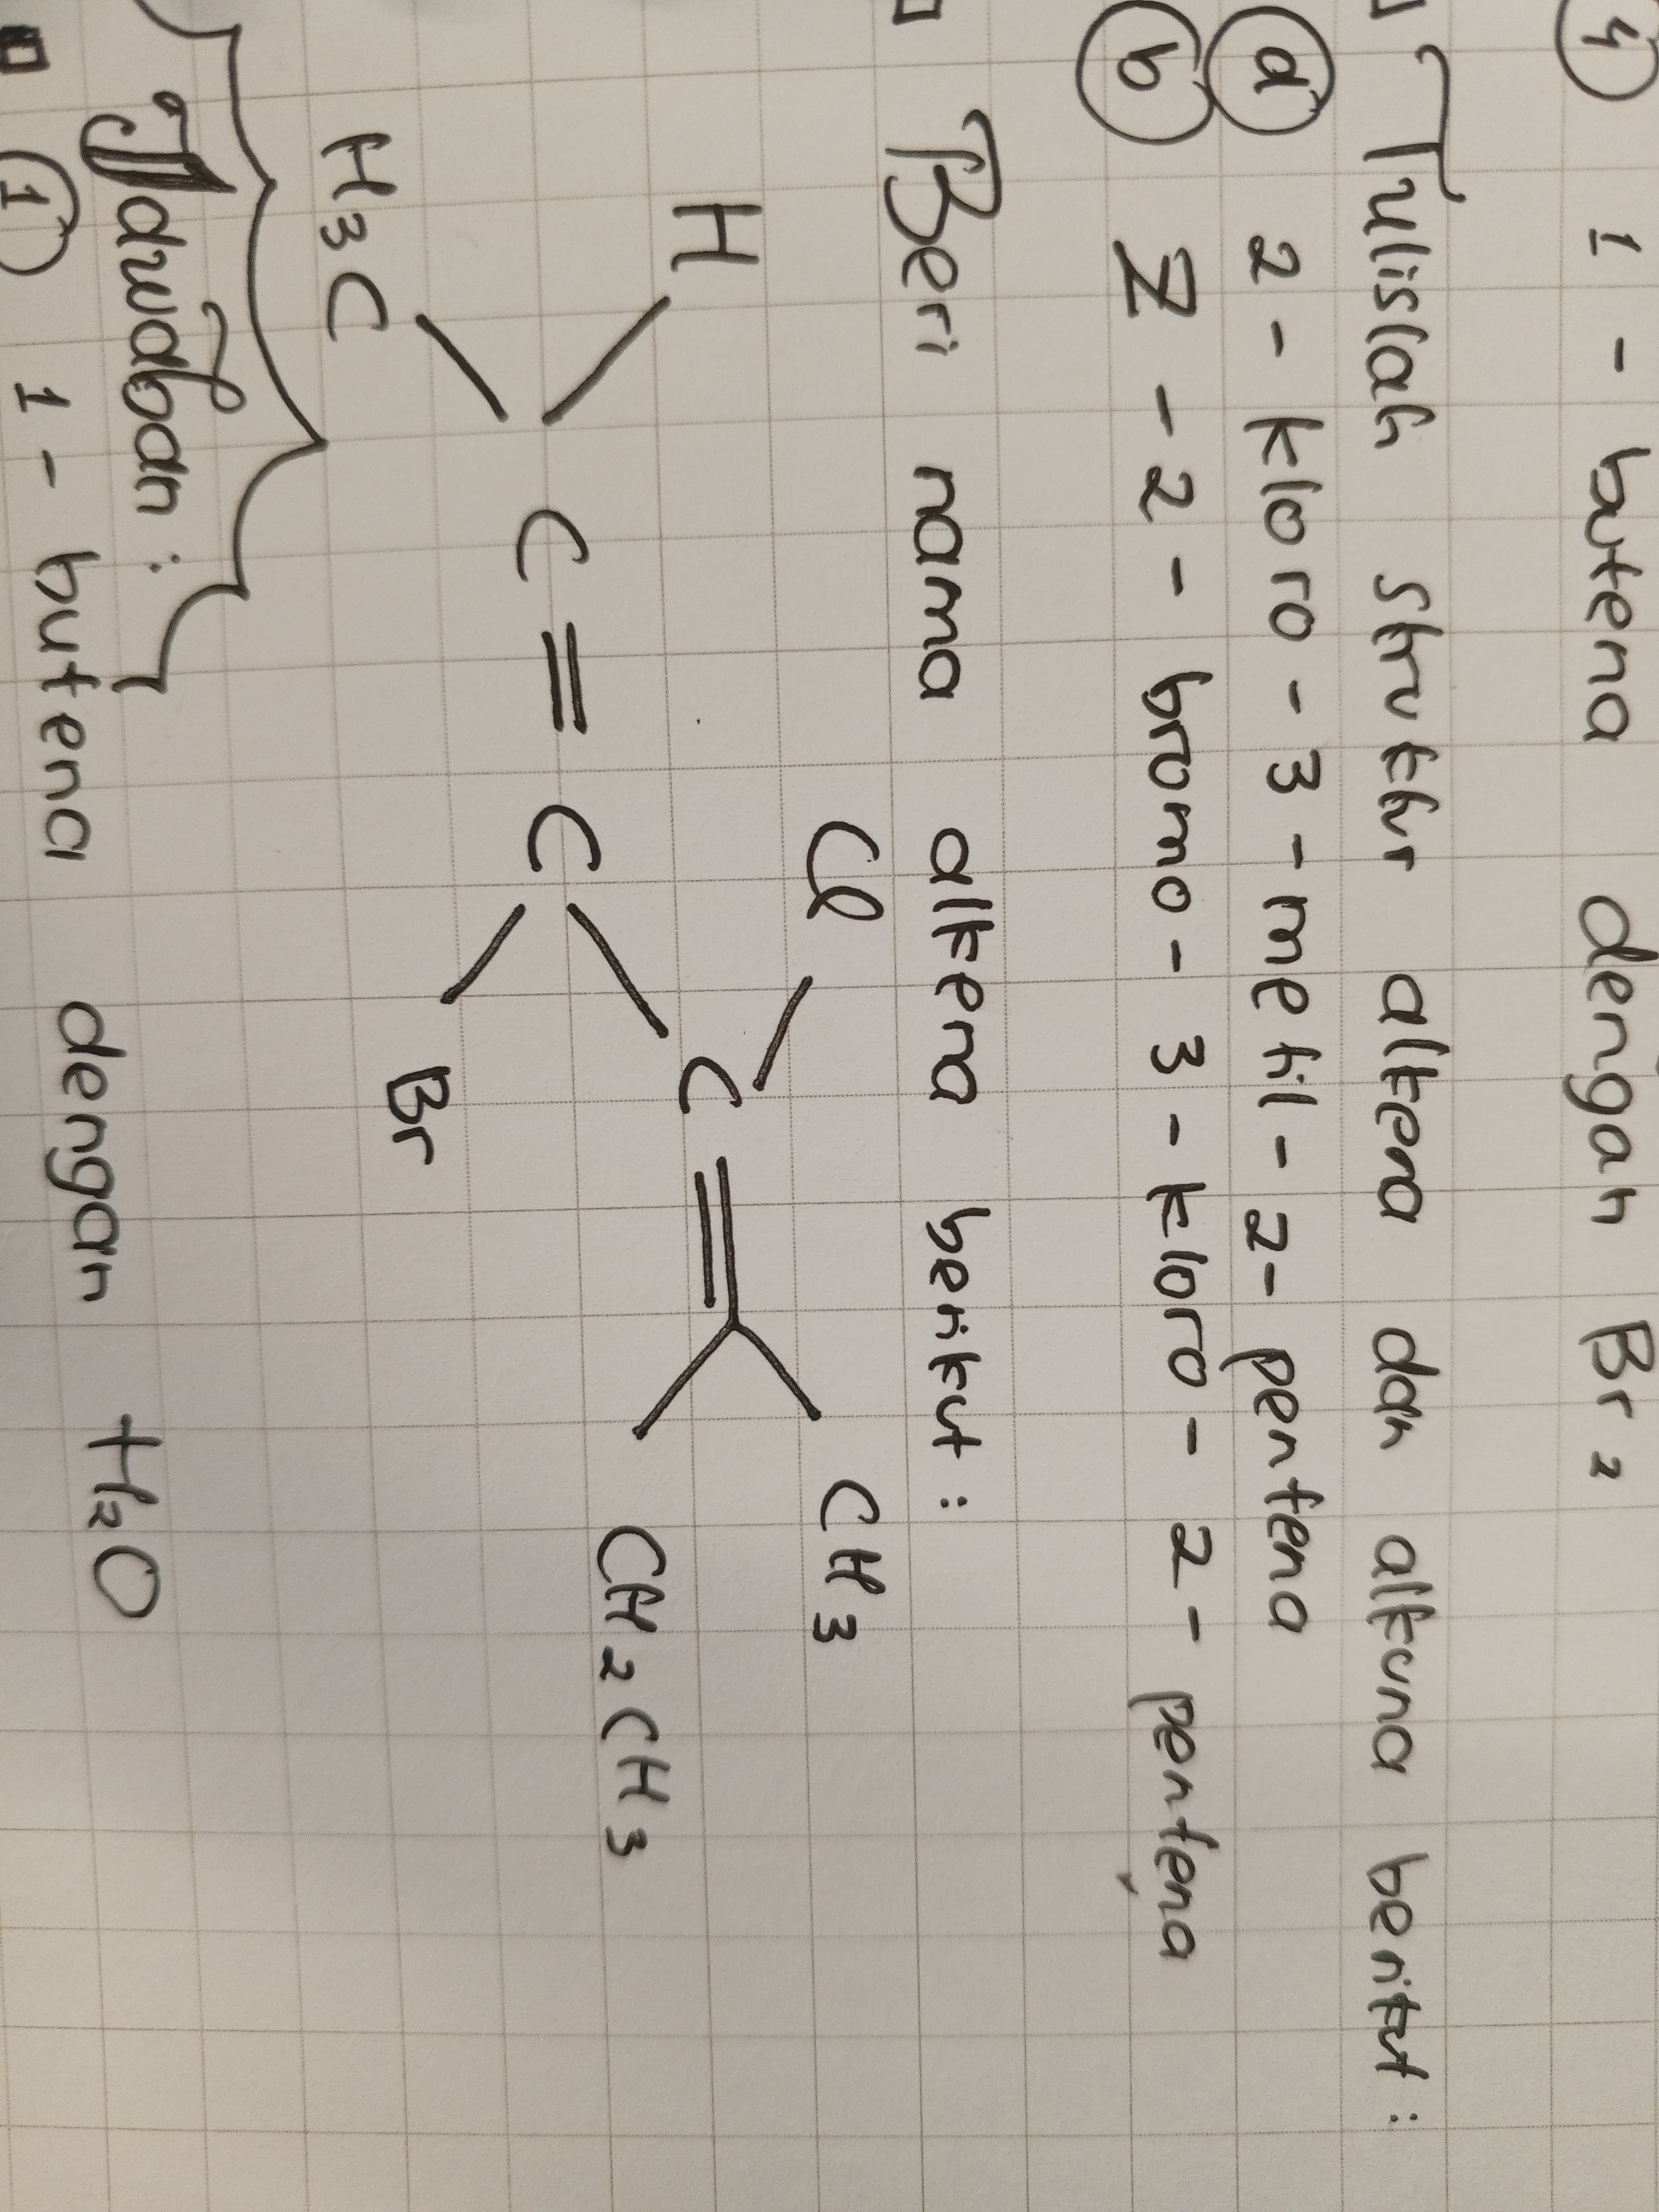 4 1 - butena dengan Br2
Tulislah struktur alkena dan alkuna berikut :
a 2 - kloro - 3 - metil - 2 - pentena
b Z - 2 - bromo - 3 - kloro - 2 - pentena
Beri nama alkena berikut :
Cl CH3
H C
C = C CH2CH3
H3C Br
Jawaban :
1 1 - butena dengan H2O